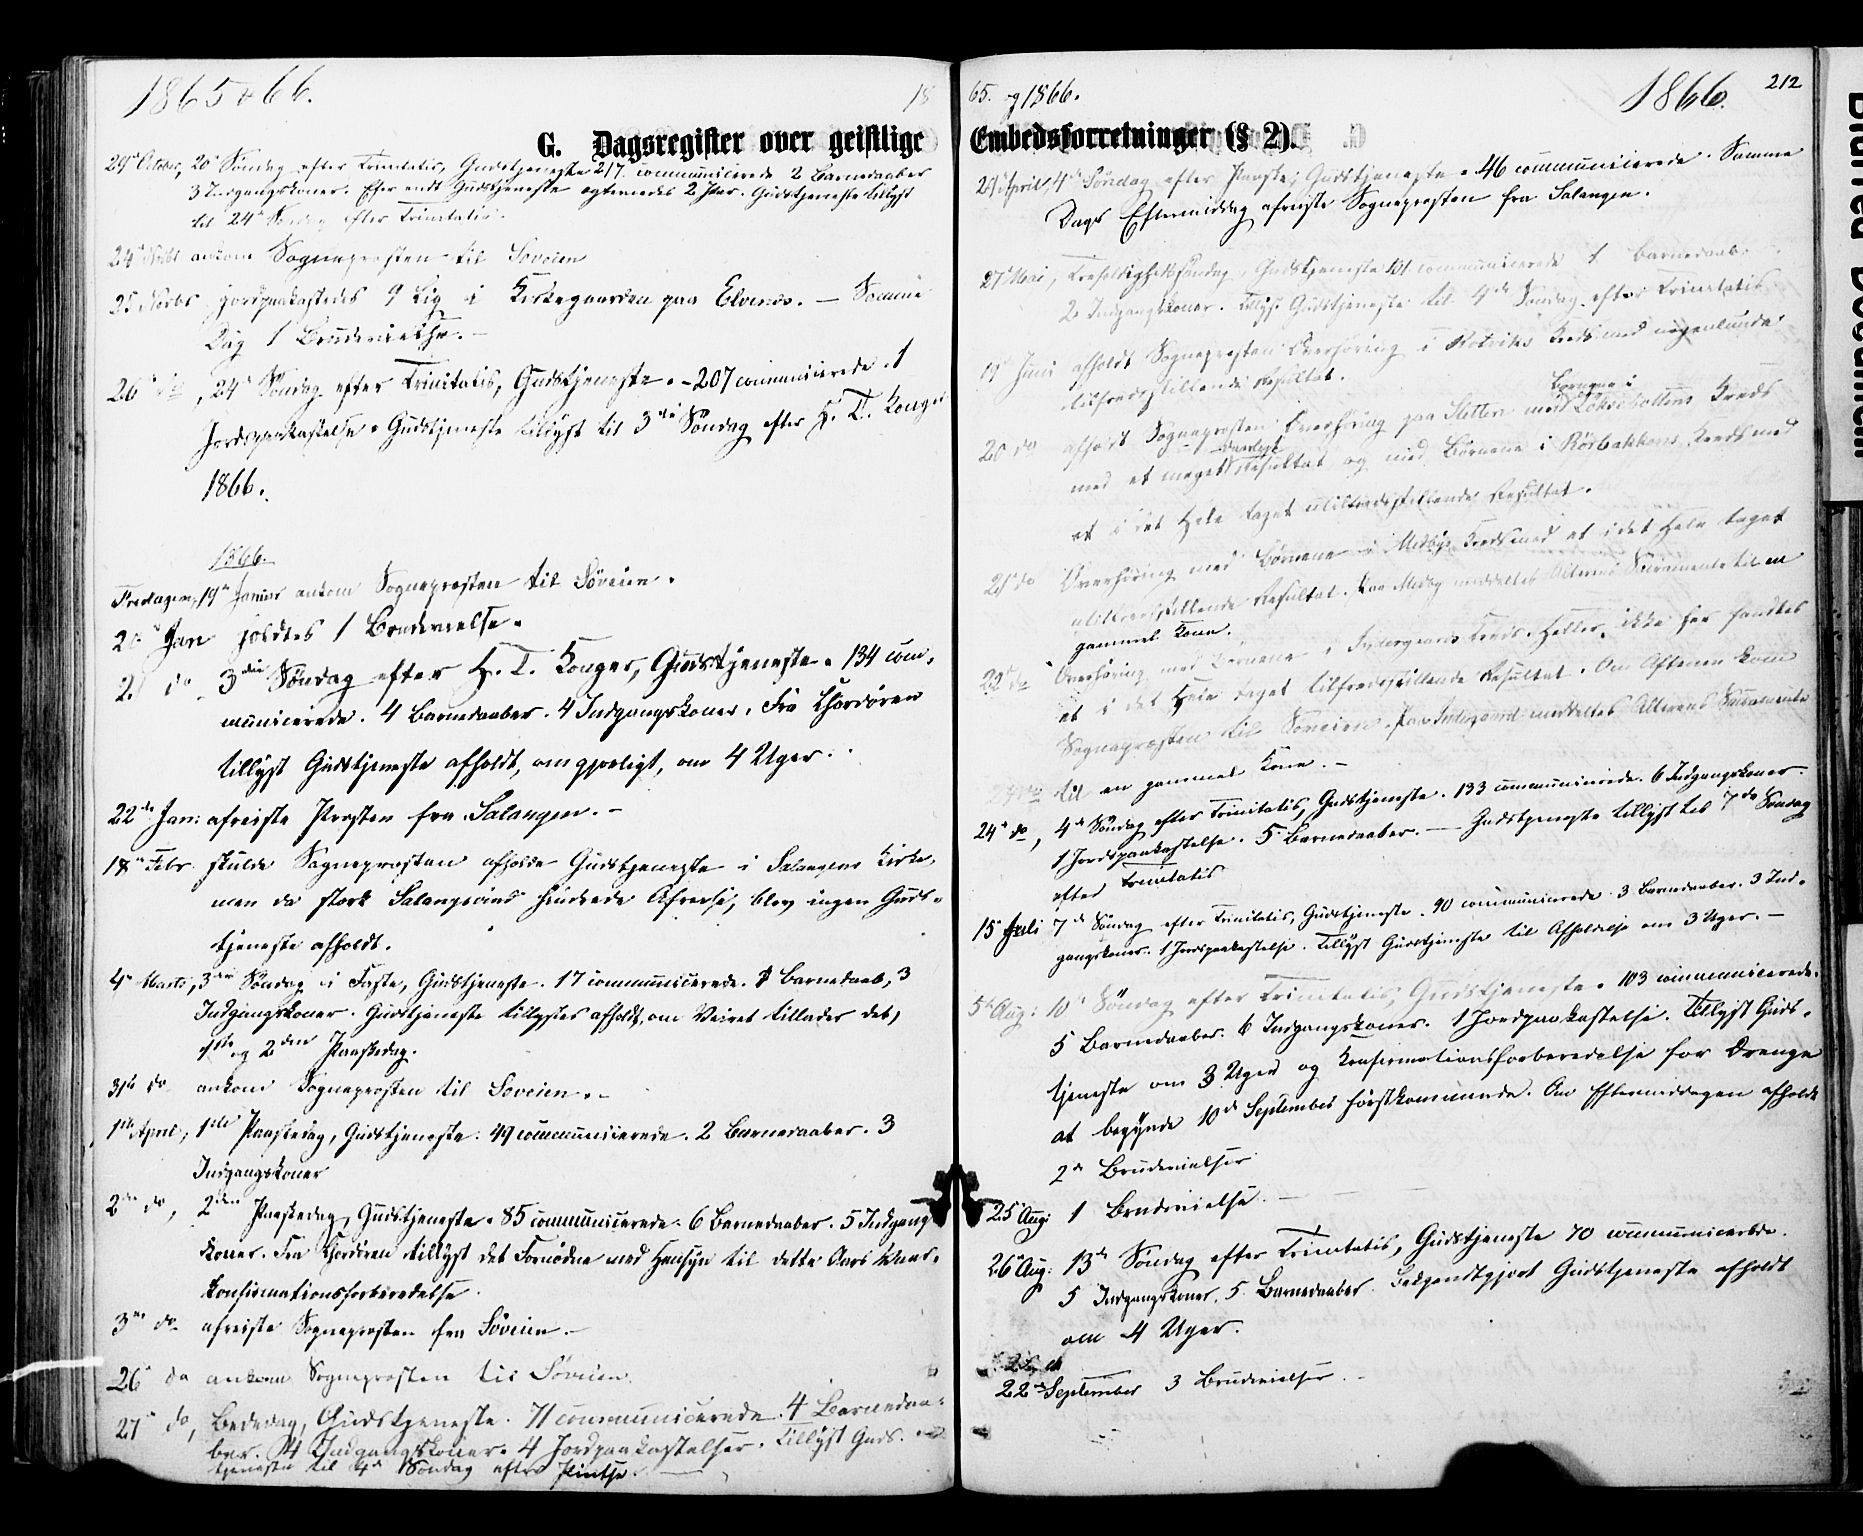 1865 & 66.
18
G. Dagsregister over geistlige
29de October, 20de Søndag efter Trinitatis, Gudstjeneste 217 communicerede 2 Barnedaaber
3 Indgangskoner. Efter endt Gudstjeneste egteviedes 2 Par. Gudstjeneste tillyst
til 24de Søndag efter Trinitatis.
24de Novbr ankom Sognepræsten til Søveien
25 Novbr jordpaakastedes 9 Lig i Kirkegaarden paa Elvenes. — Samme
Dag 1 Brudevielse. —
26de do, 24de Søndag efter Trinitatis, Gudstjeneste. – 207 communicerede. 1
Jordspaakastelse. Gudstjeneste tillyst til 3die Søndag efter H. T. Konger
1866.
1866.
Fredagen, 19de Januar ankom Sognepræsten til Søveien.
20de Jan holdtes 1 Brudevielse.
21 do 3die Søndag efter H. T. Konger, Gudstjeneste. 134 com-
municerede. 4 Barnedaaber. 4 Indgangskoner. Fra Chordøren
tillyst Gudstjeneste afholdt, om gjørligt, om 4 Uger.
22de Jan: afreiste Præsten fra Salangen. –
18de Febr skulde Sognepræsten afholde Gudstjeneste i Salangens Kirke,
men da stærk Salangsvind hindrede Afreise, blev ingen Guds-
tjeneste afholdt.
4de Marts, 3die Søndag i Faste, Gudstjeneste. 17 communicerede. 1 Barnedaab, 3
Indgangskoner. Gudstjeneste tillystes afholdt, om Veiret tillader det,
1ste og 2den Paaskedag.
31te do ankom Sognepræsten til Søveien. –
1ste April, 1ste Paaskedag, Gudstjeneste. 49 communicerede. 2 Barnedaaber. 3
Indgangskoner
2den do, 2den Paaskedag, Gudstjeneste. 85 communicerede. 6 Barnedaaber. 5 Indgangs
koner. Fra Chordøren tillyst det Fornødne med Hensyn til dette Aars
Konfirmationsforberedelse.
3die do afreiste Sognepræsten fra Søveien. –
26de do ankom Sognepræsten til Søveien.
27de do, Bededag, Gudstjeneste. 71 communicerede. 4 Barnedaa-
ber. 4 Indgangskoner. 4 Jordpaakastelser. Tillyst Guds-
tjeneste til 4de Søndag efter
65. og 1866.
1866.
212
Embedsforretninger (§ 2).
April 4de Søndag efter Paaske, Gudstjeneste. 46 communicerede. Samme
Dags Eftermiddag afreiste Sognepræsten fra Salangen.
27 Mai, Trefoldighedssøndag, Gudstjeneste 101 communicerede 1 Barnedaab.
2 Indgangskoner. Tillyst Gudstjeneste til 4de Søndag efter Trinitatis
19de Juni afholdt Sognepræsten Overhøring i Rotviks Kreds med nogenlunde
tilfredsstillende Resultat.
Børnene i
20 do afholdt Sognepræsten Overhøring paa Sletten med Kreds
med et meget Resultat og med Børnene i Rørbakkens Kreds med
et i det Hele taget utilfredsstillende Resultat.
21de do Overhøring med Børnene i Medby Kreds med et i det Hele taget
utilfredsstillende Resultat. Paa Medby meddeltes Alterens Sacramente til en
gammel Kone.
22de do Overhøring med Børnene i Kreds. Heller ikke her fandtes
et i det Hele taget tilfredsstillende Resultat. Om Aftenen kom
Sognepræsten til Søveien. Paa meddeltes Alterens Sacramente
til en gammel Kone. –
24de do, 4de Søndag efter Trinitatis, Gudstjeneste. 133 communicerede. 6 Indgangskoner.
1 Jordspaakastelse. 5 Barnedaaber. — Gudstjeneste tillyst til 7de Søndag
efter Trinitatis
15 Juli 7de Søndag efter Trinitatis, Gudstjeneste. 90 communicerede. 3 Barnedaaber. 3 Ind-
gangskoner. 1 Jordspaakastelse. Tillyst Gudstjeneste til Afholdelse om 3 Uger. –
5te Aug: 10de Søndag efter Trinitatis, Gudstjeneste. 103 communicerede.
5 Barnedaaber. 6 Indgangskoner. 1 Jordpaakastelse. Tillyst Guds-
tjeneste om 3 Uger og Konfirmationsforberedelse for Drenge
at begynde 10de September førstkommende. Om Eftermiddagen afholdt
2de Brudevielser
25 Aug: 1 Brudevielse. —
26de Aug: 13de Søndag efter Trinitatis, Gudstjeneste 70 communicerede.
5 Indgangskoner. 5 Barnedaaber. Bekjendtgjort Gudstjeneste afholdt
om 4 Uger.
22de September 3 Brudevielser. –